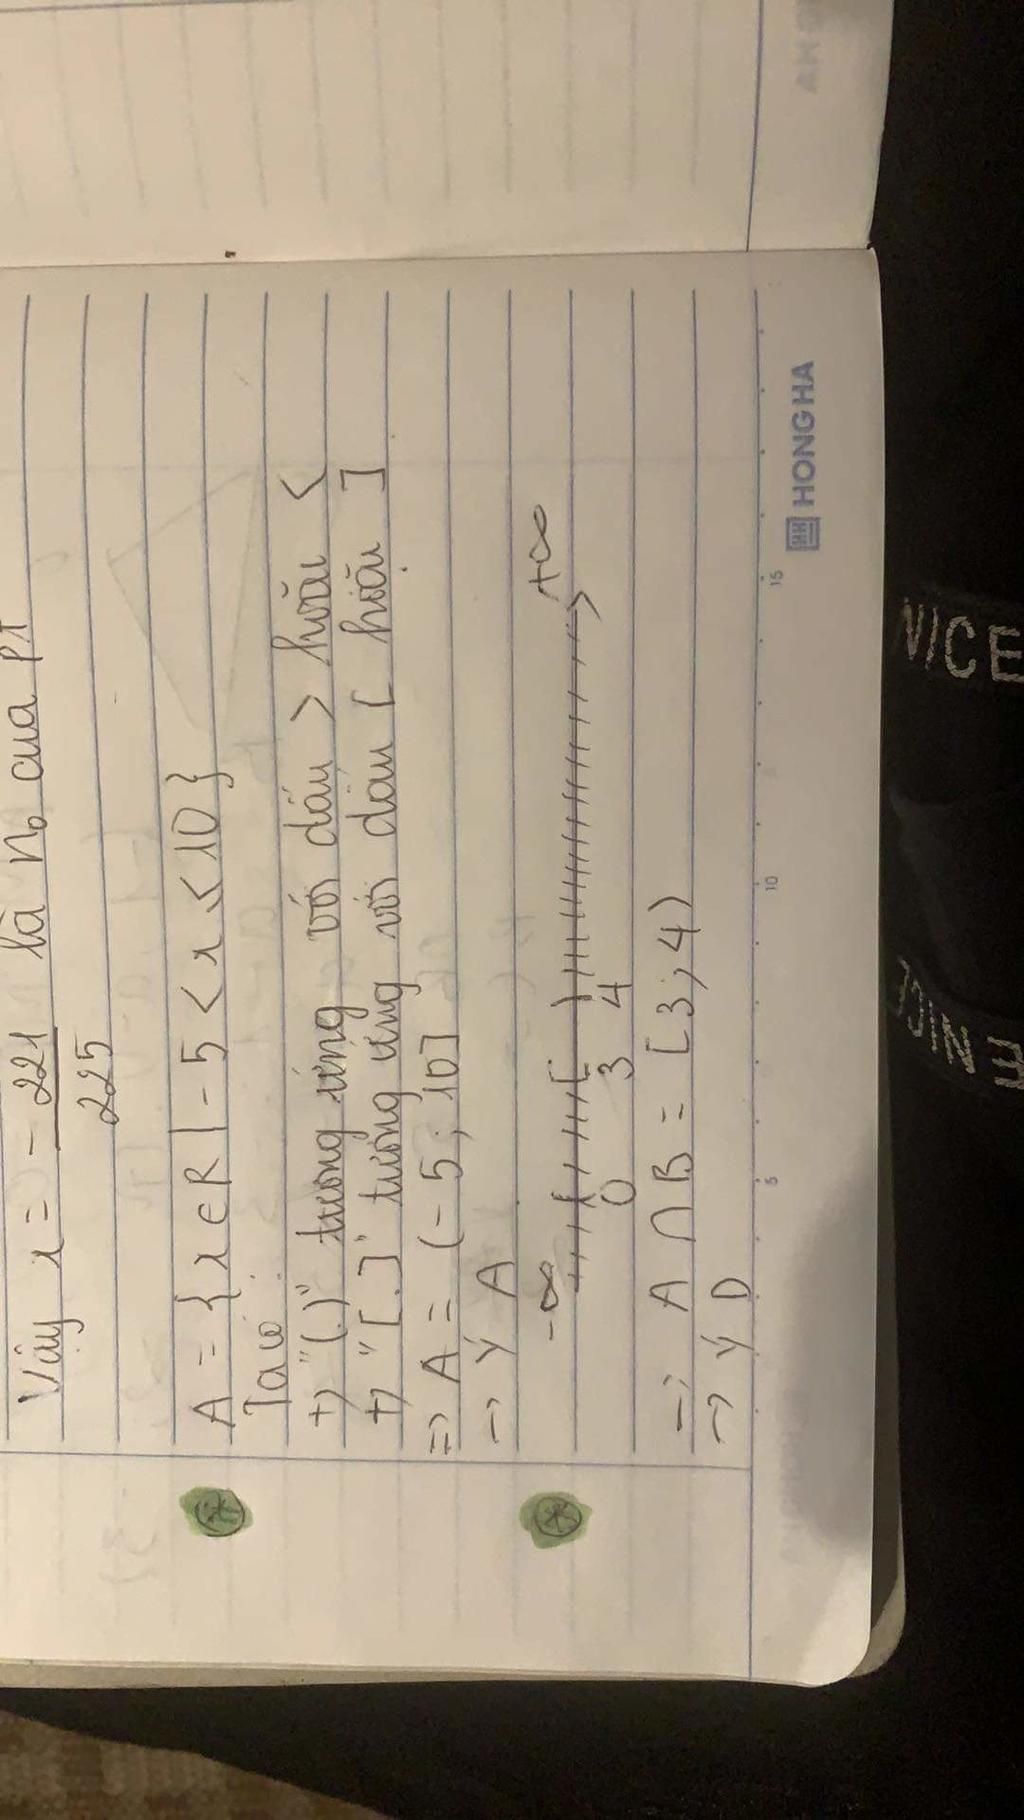 Vậy x = - 221 là n₀ của PT
225
A = { x ∈ R | - 5 < x ≤ 10 }
Ta có:
+) "(.)" tương ứng với dấu > hoặc <
+) "[.]" tương ứng với dấu [ hoặc ]
=> A = ( - 5 ; 10]
→ Ý A
-∞ +∞
( [ )
0 3 4
→ A ∩ B = [ 3 ; 4 )
→ Ý D
5 10 15
HH HONG HA
NICE
NICE